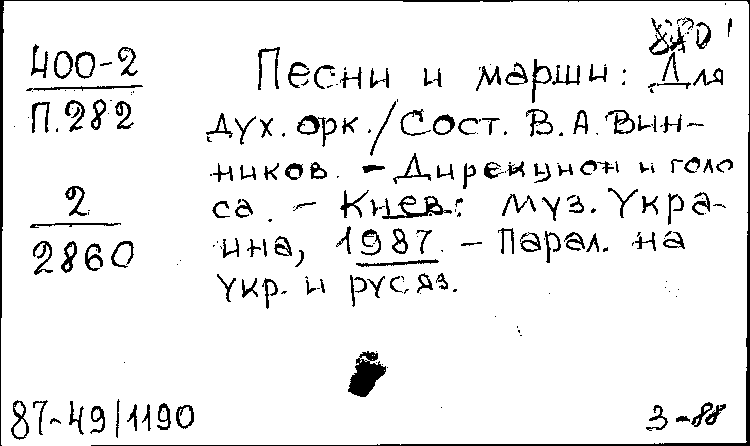 400-2
П.282
2
2860
Песни и марши: Для
дух. орк./Сост. В.А. Вин-
ников. - Дирекцион и голо
са. - Киев: муз. Укра-
ина, 1987. - Парал. на
укр. и рус яз.
87-49/1190
3-88